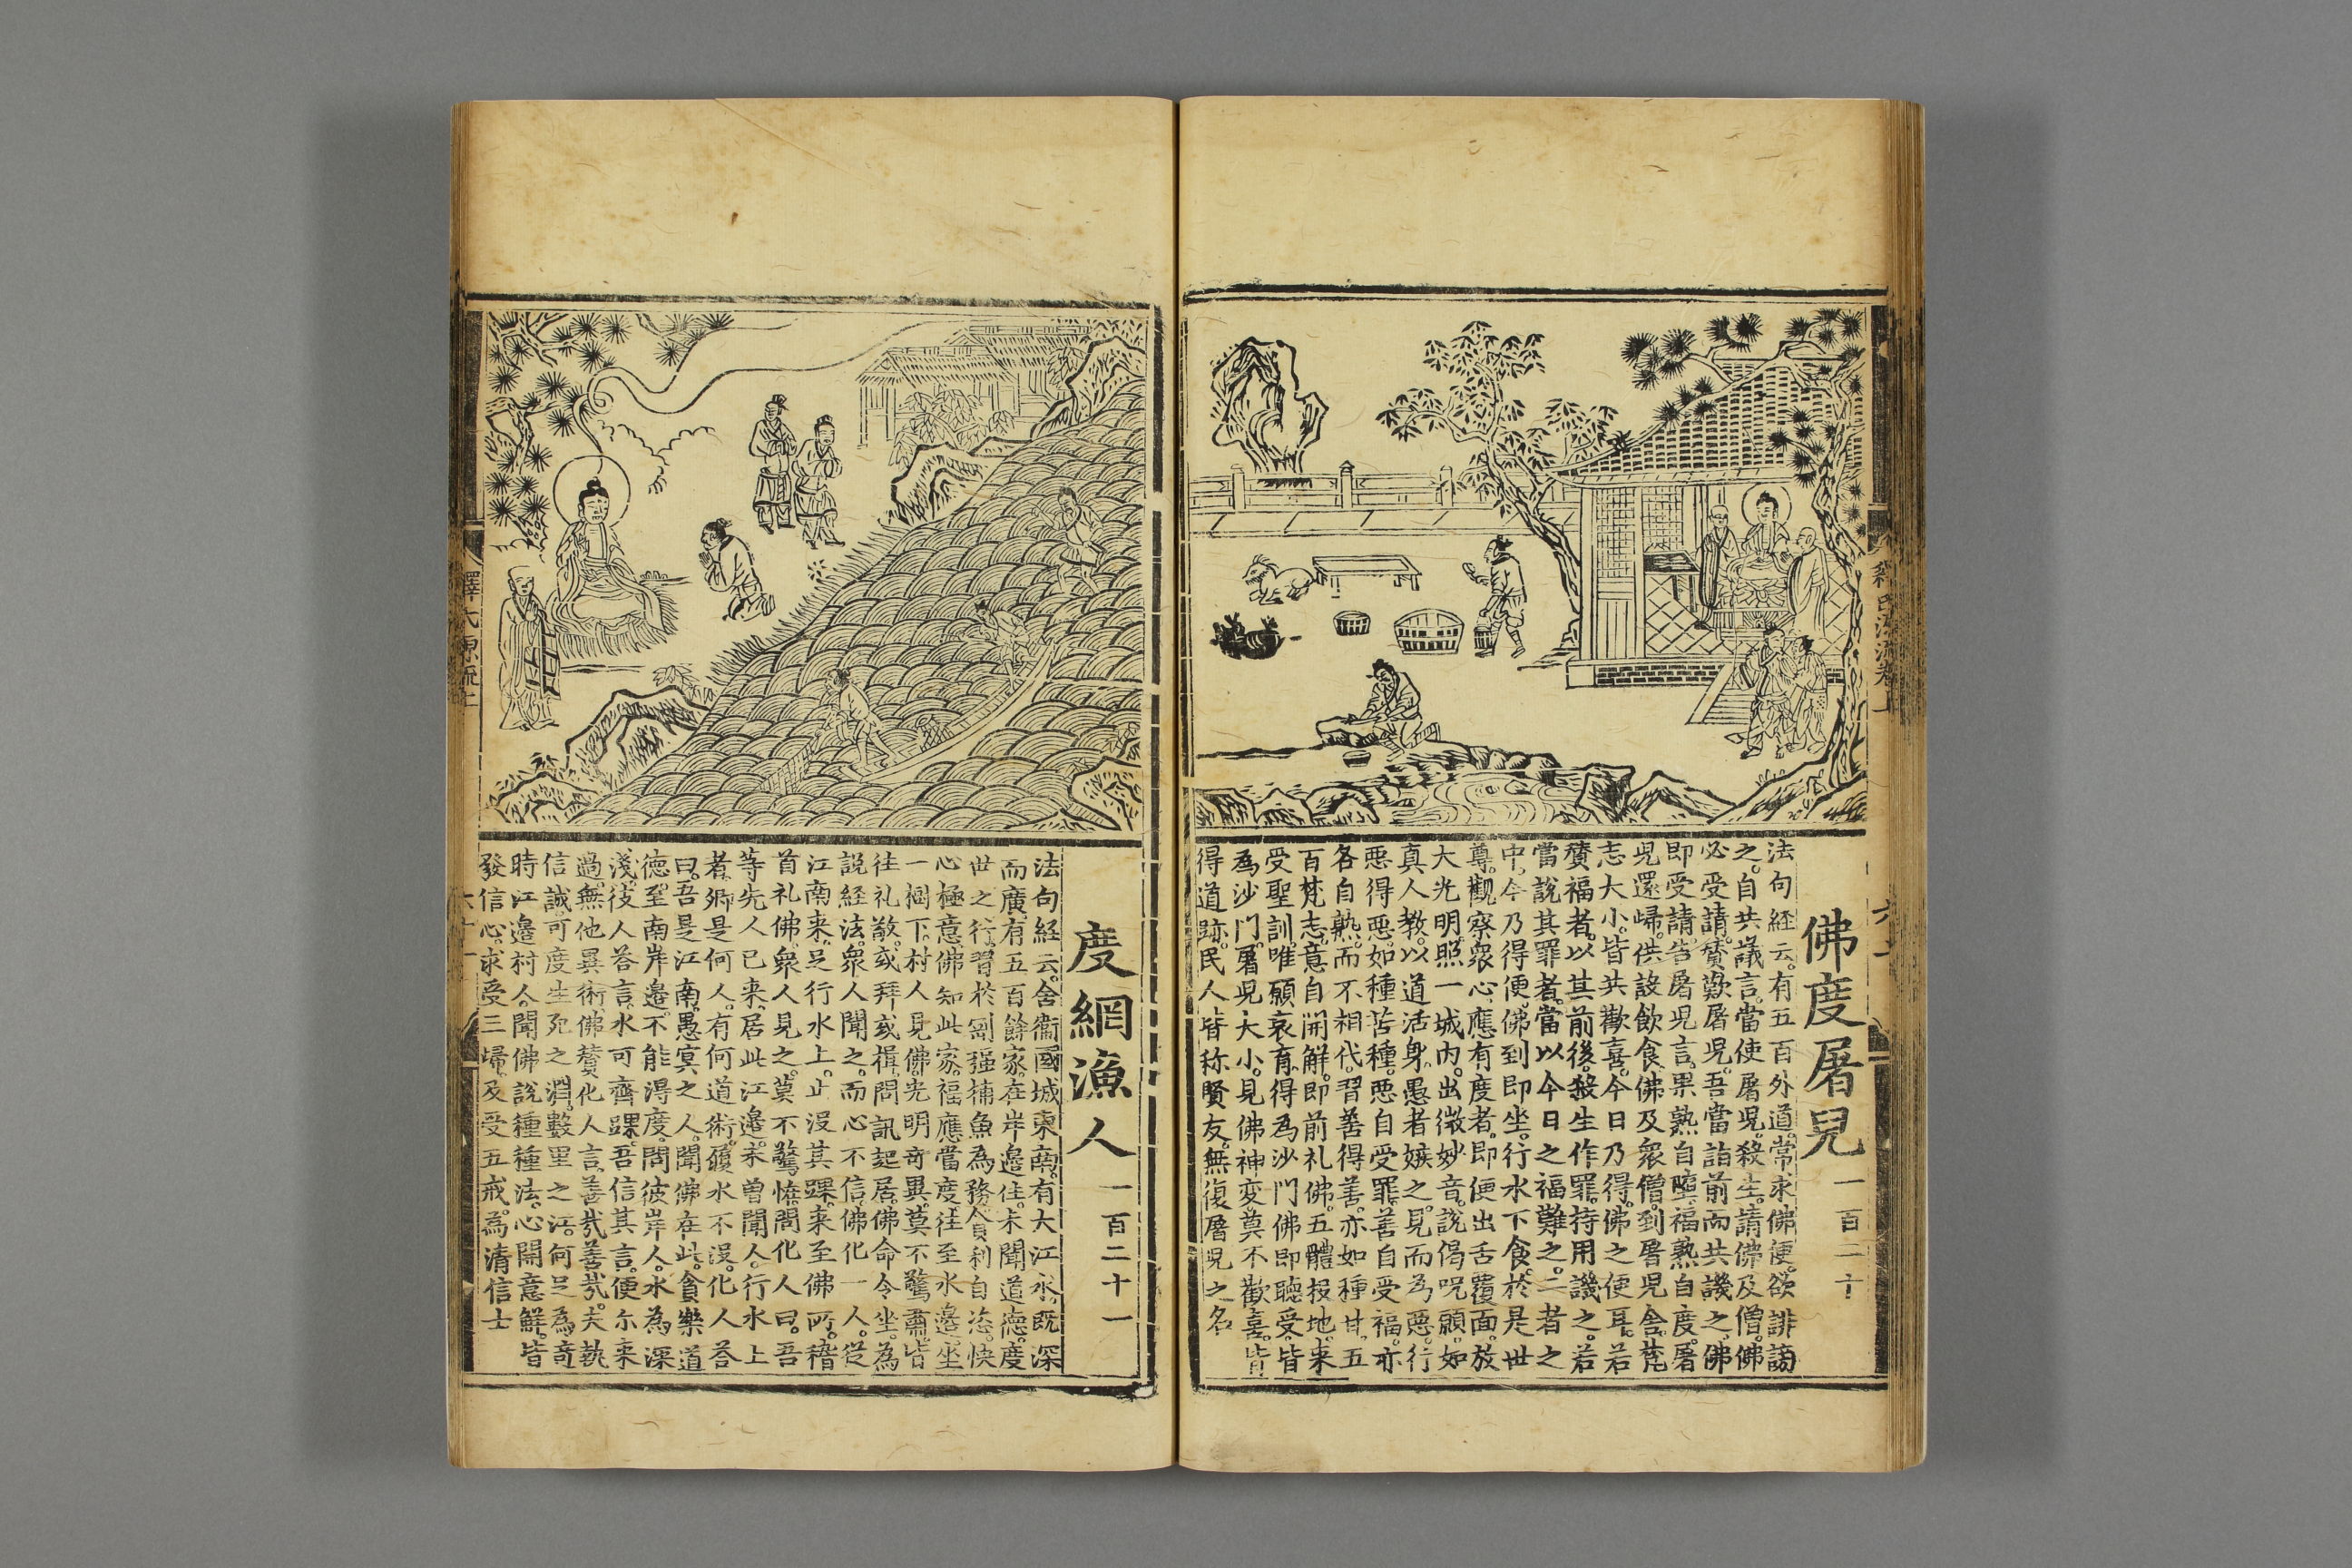 釋氏源流卷上
佛度屠兒 一百二十
法句経云。有五百外道。常求佛便。欲誹謗
之。自共議言。當使屠児。殺生。請佛及僧。佛
必受請。賛歎屠児。吾當詣前而共譏之。佛
即受請。告屠児言。果熟自墮。福熟自度。屠
児還帰。供設飲食。佛及衆僧。到屠児舎。梵
志大小。皆共歡喜。今日乃得。佛之便耳。若
賛福者。以其前後。殺生作罪。持用譏之。若
當說其罪者。當以今日之福難之。二者之
中。今乃得便。佛到即坐。行水下食。於是世
尊。觀察衆心。應有度者。即便出舌覆面。放
大光明。照一城内。出微妙音。說偈呪願。如
真人教。以道活身。愚者嫉之。見而為惡。行
惡得惡。如種苦種。惡自受罪。善自受福。亦
各自熟。而不相代。習善得善。亦如種甘。五
百梵志。意自開解。即前礼佛。五體投地。来
受聖訓。唯願哀育。得為沙門佛即聽受。皆
為沙門。屠児大小。見佛神変。莫不歡喜。皆
得道跡。民人皆称賢友。無復屠児之名
度網漁人 一百二十一
法句経云。舍衞國城東南。有大江水。既深
而廣。有五百餘家。在岸邉住。未聞道德。度
世之行。習於剛强。捕魚為務。貪利自恣。快
心極意。佛知此家。福應當度。往至水邉。坐
一樹下。村人見佛。光明竒異。莫不驚肅。皆
徃礼敬。或拜或揖。問訊起居。佛命令坐。為
說経法。衆人聞之。而心不信。佛化一人。從
江南来。足行水上。止没其踝。来至佛所。稽
首礼佛。衆人見之。莫不驚恠。問化人曰。吾
等先人已来。居此江邉。未曽聞人。行水上
者。卿是何人。有何道術。履水不没。化人荅
曰。吾是江南。愚冥之人。聞佛在此。貪樂道
德。至南岸邉。不能得度。問彼岸人。水為深
淺。彼人荅言。水可齊踝。吾信其言。便尓来
過。無他異術。佛賛化人言。善哉善哉。夫執
信誠。可度生死之淵。數里之江。何足為竒
時江邉村人。聞佛說種種法。心開意解。皆
發信心。求受三帰。及受五戒。為清信士
釋氏源流上
六十一